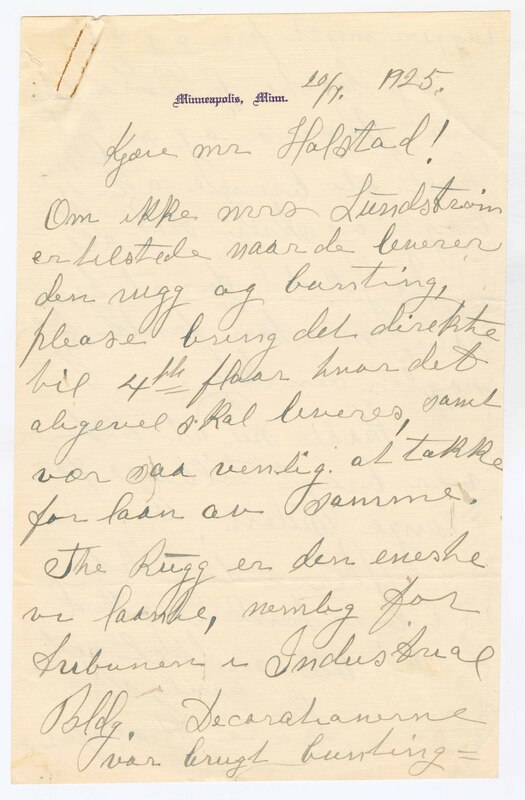 Minneapolis, Minn. 20/7. 1925.
Kjære mr Halstad!
Om ikke mrs Lundstrøm
er tilstede naar de leverer
den rugg og bunting,
please bring det direkte
til 4th flaar hvor det
alligevel skal leveres, samt
vær saa venlig at takke
for laan av samme.
The Rugg er den eneste
vi laante, nemlig for
tribunen i Industrial
Bldg. Decorationerne
var brugt bunting=